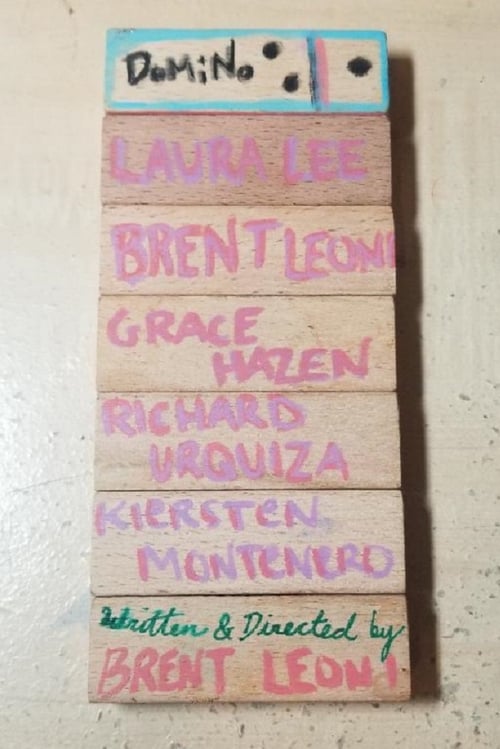 DOMiNo
LAURA LEE
BRENT LEONI
GRACE
HAZEN
RICHARD
URQUIZA
KIERSTEN
MONTENERO
Written & Directed by
BRENT LEONI